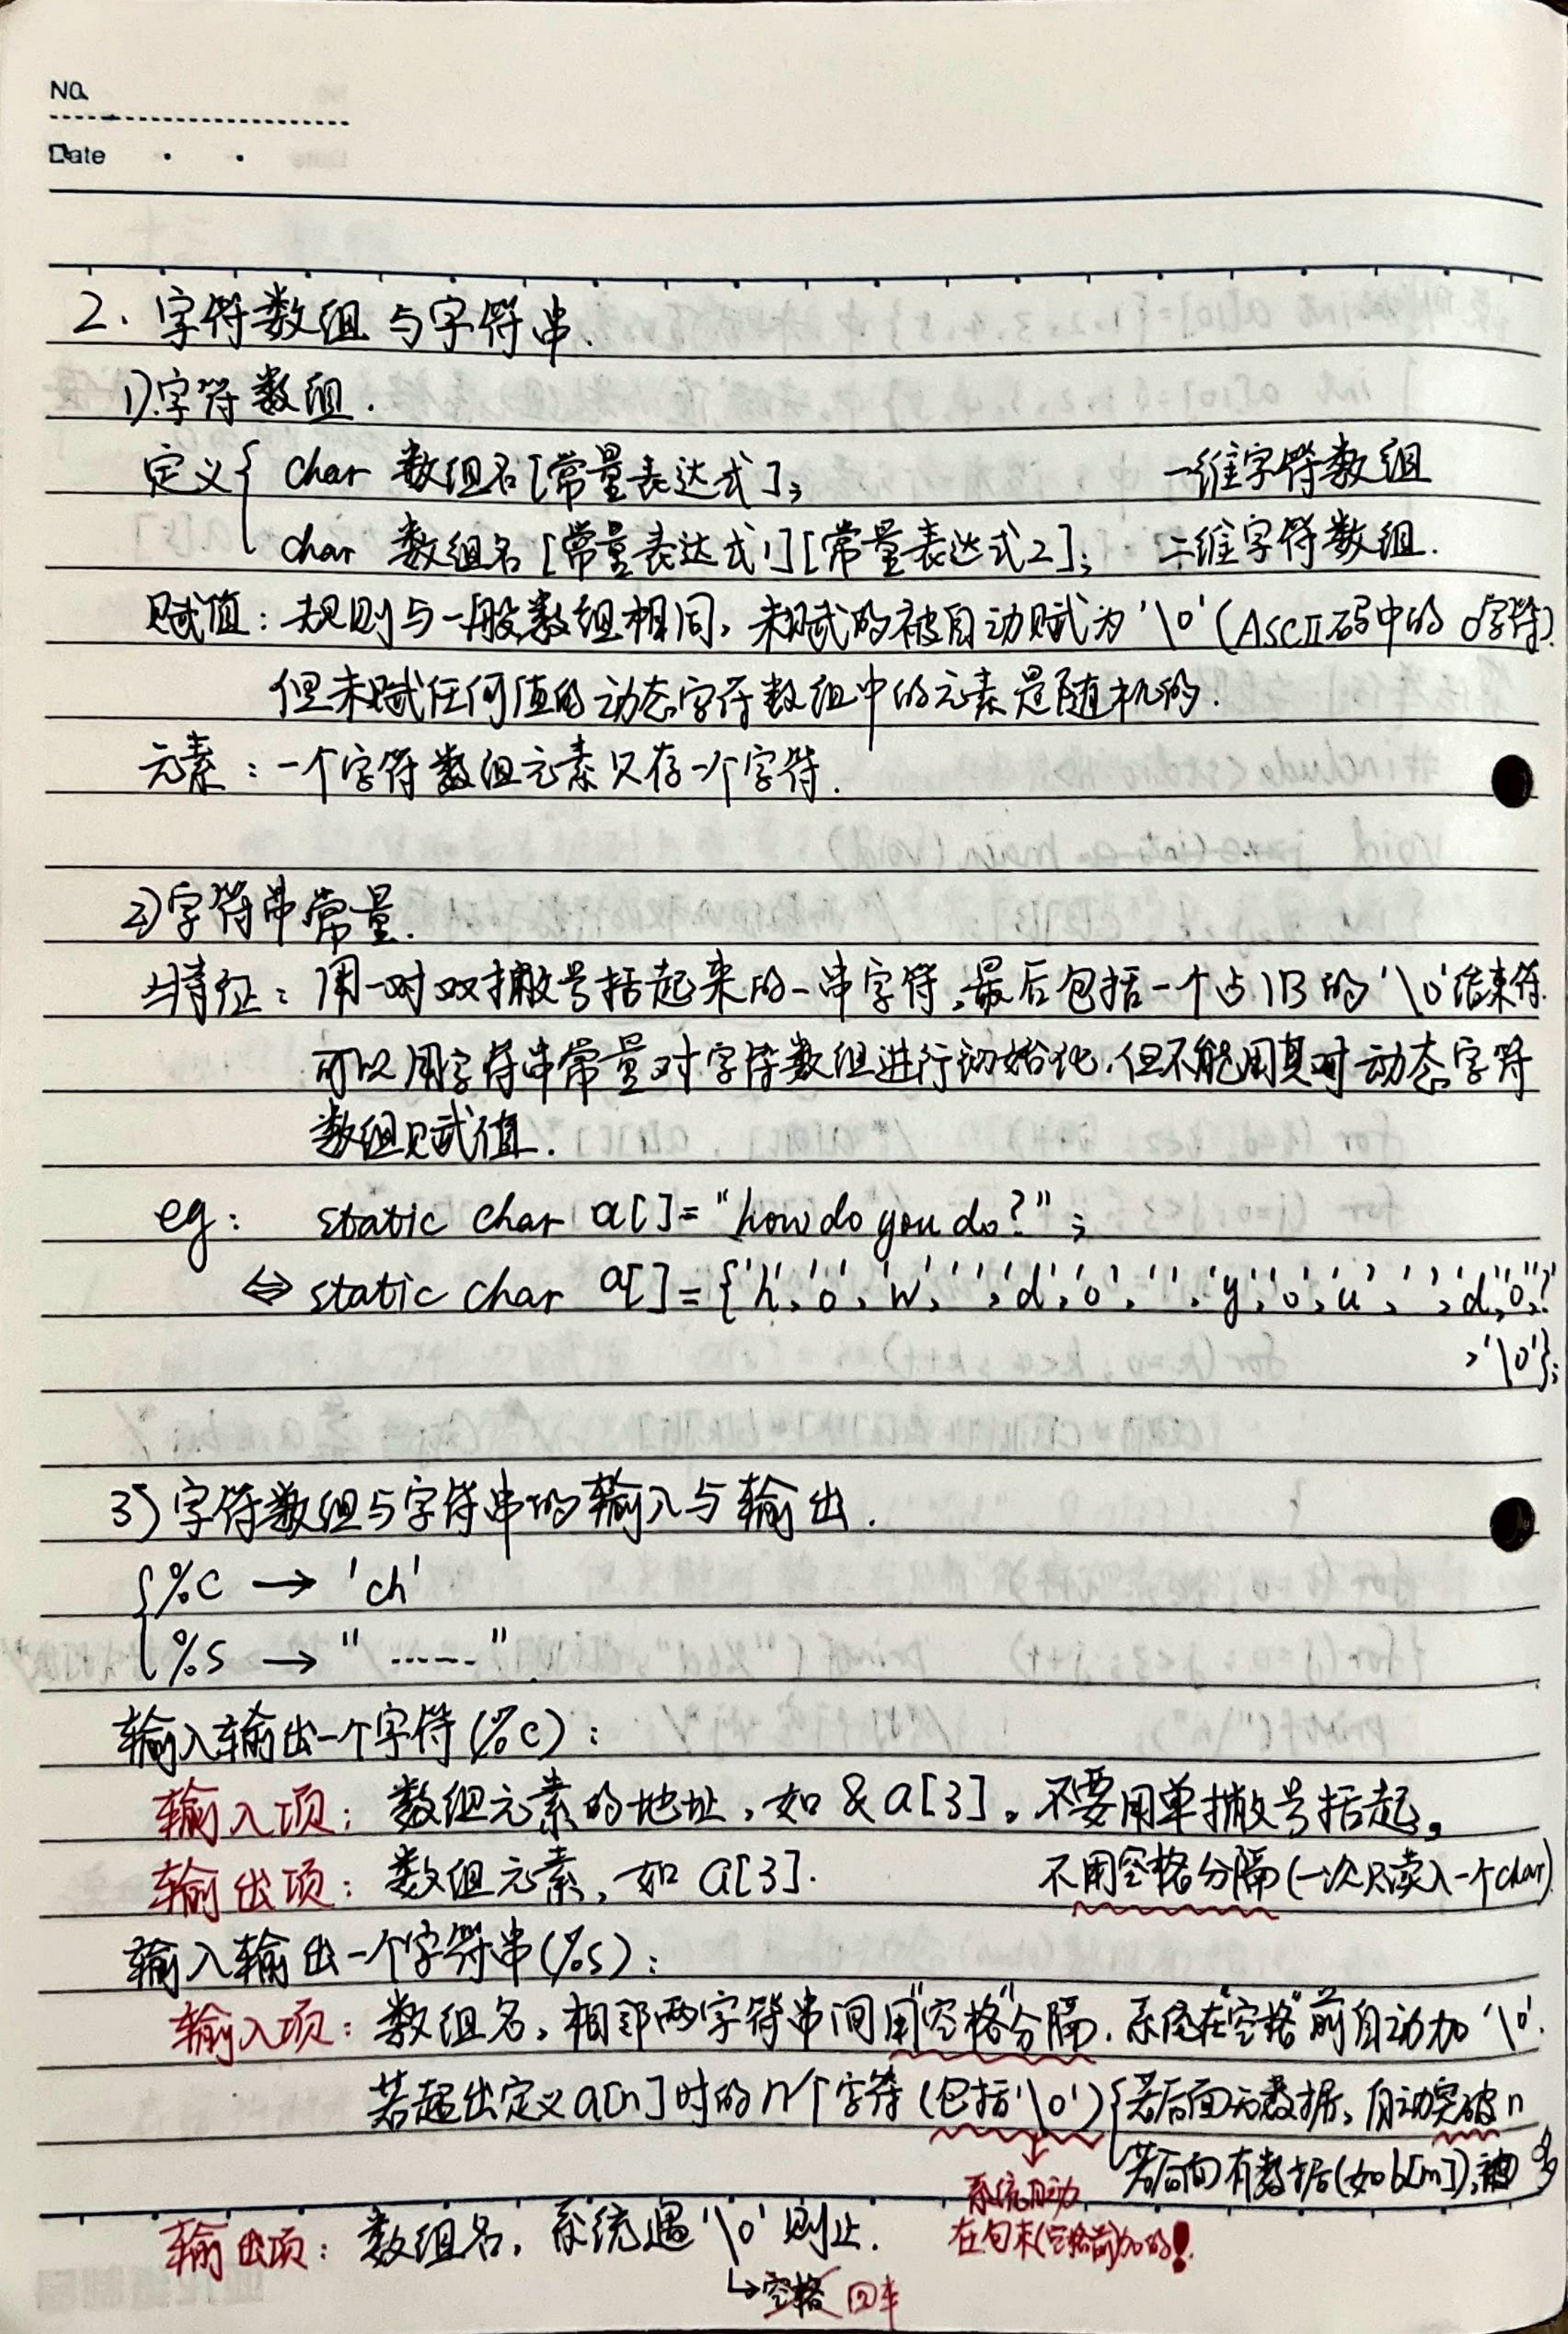 No.
Date
2. 字符数组与字符串.
1).字符数组.
定义{ char 数组名[常量表达式]; 一维字符数组
char 数组名[常量表达式1][常量表达式2]; 二维字符数组.
赋值: 规则与一般数组相同, 未赋的被自动赋为'\0'(ASCII码中的0字符)
但未赋任何值的动态字符数组中的元素是随机的.
元素: 一个字符数组元素只存一个字符.
2)字符串常量.
特征: 用一对双撇号括起来的一串字符,最后包括一个占1B的'\0'结束符.
可以用字符串常量对字符数组进行初始化,但不能用其对动态字符
数组赋值.
eg: static char a[]="how do you do?";
⇔ static char a[]={'h','o','w',' ','d','o',' ','y','o','u',' ','d','o','?'
,'\0'};
3)字符数组与字符串的输入与输出.
{%c → 'ch'
%s → "……"
输入输出一个字符(%c):
输入项: 数组元素的地址,如&a[3]。不要用单撇号括起。
输出项: 数组元素,如a[3]. 不用空格分隔(一次只读入一个char)
输入输出一个字符串(%s):
输入项: 数组名,相邻两字符串间用"空格"分隔.系统在"空格"前自动加'\0'.
若超出定义a[n]时的n个字符(包括'\0'){若后面无数据,自动突破n
若后面有数据(如b[m]),
系统自动
在句末(空格前)加的!
输出项: 数组名,系统遇'\0'则止.
↳空格 回车